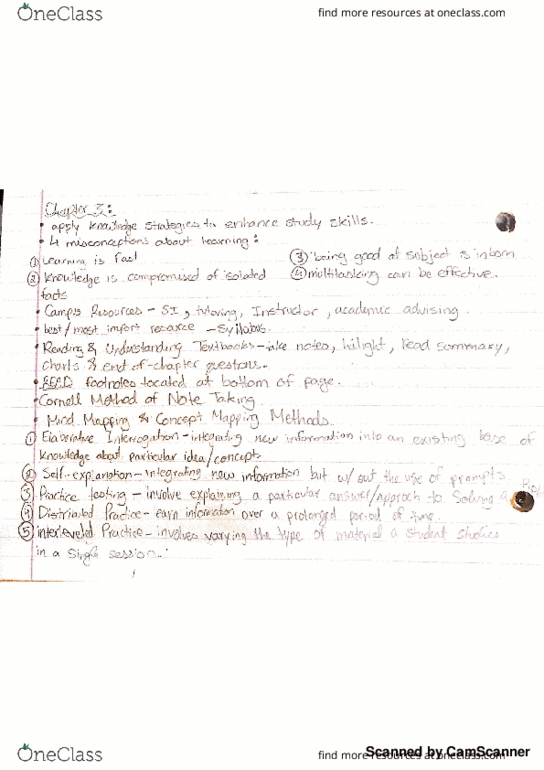 OneClass
find more resources at oneclass.com
Chapter 3:
• apply knowledge strategies to enhance study skills.
• 4 misconceptions about learning:
① Learning is fast
③ being good at subject is inborn
② Knowledge is compromised of isolated
④ multitasking can be effective.
facts
• Campus Resources - SI, tutoring, Instructor, academic advising.
• best/most import resource - Syllabus.
• Reading & Understanding Textbooks - take notes, hilight, read summary,
charts & end of-chapter questions.
• READ footnotes located at bottom of page.
• Cornell Method of Note Taking
• Mind Mapping & Concept Mapping Methods.
① Elaborative Interrogation - integrating new information into an existing base of
knowledge about particular idea/concept.
② Self-explanation - integrating new information but w/out the use of prompts.
③ Practice testing - involve explaining a particular answer/approach to Solving a
④ Distributed Practice - earn information over a prolonged period of time.
⑤ interleveled Practice - involves varying the type of material a student studies
in a single session.
OneClass
find more resources at oneclass.com
Scanned by CamScanner